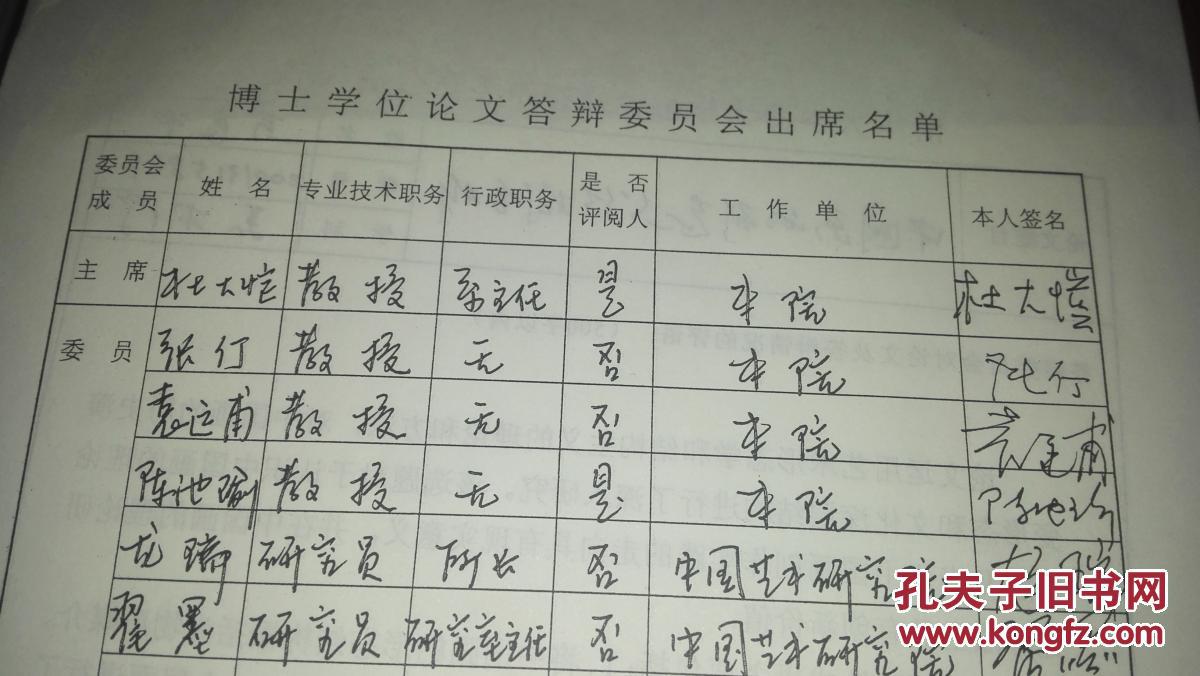 博士学位论文答辩委员会出席名单
委员会成员 姓名 专业技术职务 行政职务 是否评阅人 工作单位 本人签名
主席 杜大恺 教授 系主任 是 本院 杜大恺
委员 张仃 教授 无 否 本院 张仃
袁运甫 教授 无 否 本院 袁运甫
陈池瑜 教授 无 是 本院 陈池瑜
龙瑞 研究员 所长 否 中国艺术研究院
翟墨 研究员 研究室主任 否 中国艺术研究院
孔夫子旧书网
www.kongfz.com